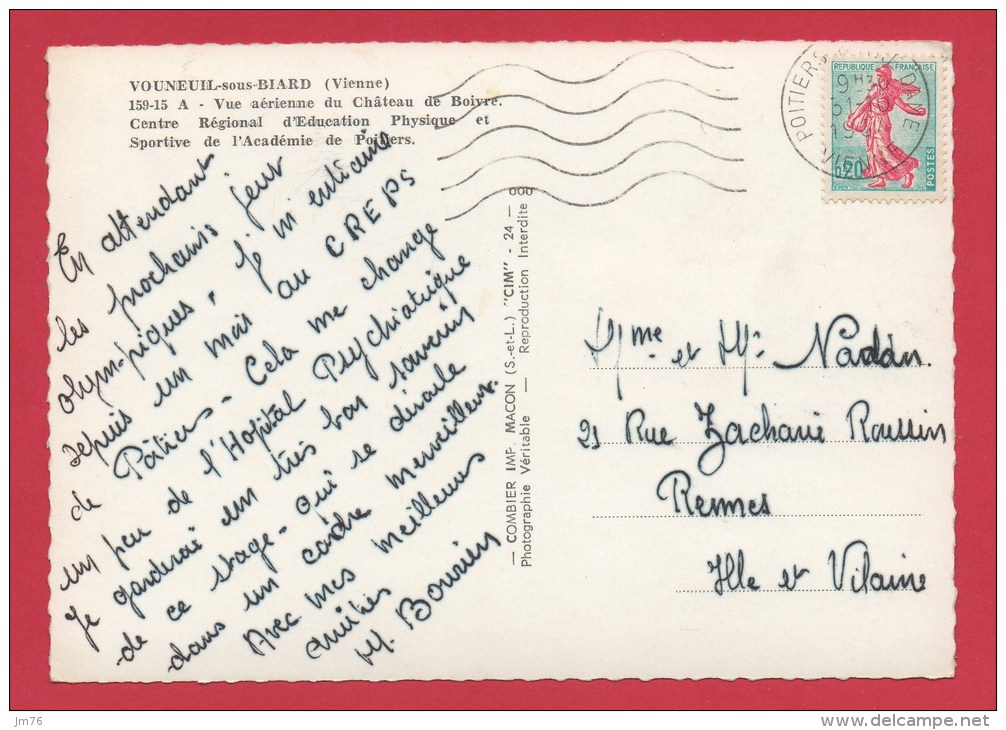 VOUNEUIL-sous-BIARD (Vienne)
159-15 A - Vue aérienne du Château de Boivre.
Centre Régional d'Education Physique et
Sportive de l'Académie de Poitiers.
En attendant
les prochains jeux
olympiques, je m'entraine
depuis un mois au CREPS
de Poitiers - Cela me change
un peu de l'Hopital Psychiatrique
Je garderai un très bon souvenir
de ce stage - qui se déroule
dans un cadre merveilleux.
Avec mes meilleures
amitiés
M. Bouvier
— COMBIER IMP. MACON (S.-et-L.) "CIM" - 24 —
Photographie Véritable — Reproduction Interdite
POITIERS
9H30
VIENNE
REPUBLIQUE FRANÇAISE
0,20
POSTES
Mme et Mr Nadan
21 Rue Zacharie Roussin
Rennes
Ille et Vilaine
jm76
© delcampe.net